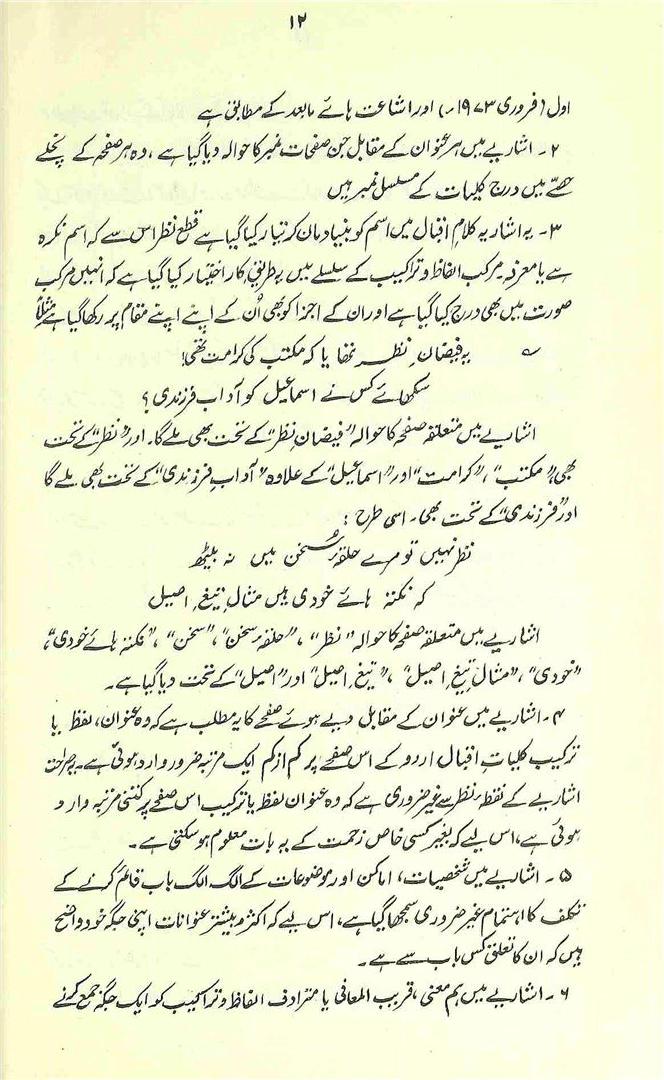 ۱۲
اول (فروری ۱۹۷۳ء) اور اشاعت ہائے مابعد کے مطابق ہے
۲۔ اشاریے میں ہر عنوان کے مقابل جن صفحات نمبر کا حوالہ دیا گیا ہے، وہ ہر صفحہ کے نچلے
حصّے میں درج کلیات کے مسلسل نمبر ہیں
۳۔ یہ اشاریہ کلامِ اقبال میں اسم کو بنیاد مان کر تیار کیا گیا ہے قطع نظر اس سے کہ اسم نکرہ
ہے یا معرفہ۔ مرکب الفاظ و تراکیب کے سلسلے میں یہ طریقِ کار اختیار کیا گیا ہے کہ انہیں مرکب
صورت میں بھی درج کیا گیا ہے اور ان کے اجزا کو بھی اُن کے اپنے اپنے مقام پر رکھا گیا ہے مثلاً
؎ یہ فیضانِ نظر تھا یا کہ مکتب کی کرامت تھی!
سکھائے کس نے اسماعیل کو آدابِ فرزندی؟
اشاریے میں متعلقہ صفحہ کا حوالہ "فیضانِ نظر" کے تحت بھی ملے گا۔ اور "نظر" کے تحت
بھی، "مکتب"، "کرامت" اور "اسماعیل" کے علاوہ "آدابِ فرزندی" کے تحت بھی ملے گا
اور "فرزندی" کے تحت بھی۔ اسی طرح :
نظر نہیں تو مرے حلقۂ سُخن میں نہ بیٹھ
کہ نکتہ ہائے خودی ہیں مثالِ تیغِ اصیل
اشاریے میں متعلقہ صفحے کا حوالہ "نظر"، "حلقۂ سخن"، "سخن"، "نکتہ ہائے خودی"،
"خودی"، "مثالِ تیغِ اصیل"، "تیغِ اصیل" اور "اصیل" کے تحت دیا گیا ہے۔
۴۔ اشاریے میں عنوان کے مقابل دیے ہوئے صفحے کا یہ مطلب ہے کہ وہ عنوان، لفظ یا
ترکیب کلیاتِ اقبال اردو کے اس صفحے پر کم از کم ایک مرتبہ ضرور وارد ہوئی ہے۔ یہ صراحت
اشاریے کے نقطۂ نظر سے غیر ضروری ہے کہ وہ عنوان لفظ یا ترکیب اس صفحے پر کتنی مرتبہ وارد
ہوئی ہے، اس لیے کہ بغیر کسی خاص زحمت کے یہ بات معلوم ہو سکتی ہے۔
۵۔ اشاریے میں شخصیات، اماکن اور موضوعات کے الگ الگ باب قائم کرنے کے
تکلف کا اہتمام غیر ضروری سمجھا گیا ہے، اس لیے کہ اکثر و بیشتر عنوانات اپنی جگہ خود واضح
ہیں کہ ان کا تعلق کس باب سے ہے۔
۶۔ اشاریے میں ہم معنی، قریب المعانی یا مترادف الفاظ و تراکیب کو ایک جگہ جمع کرنے